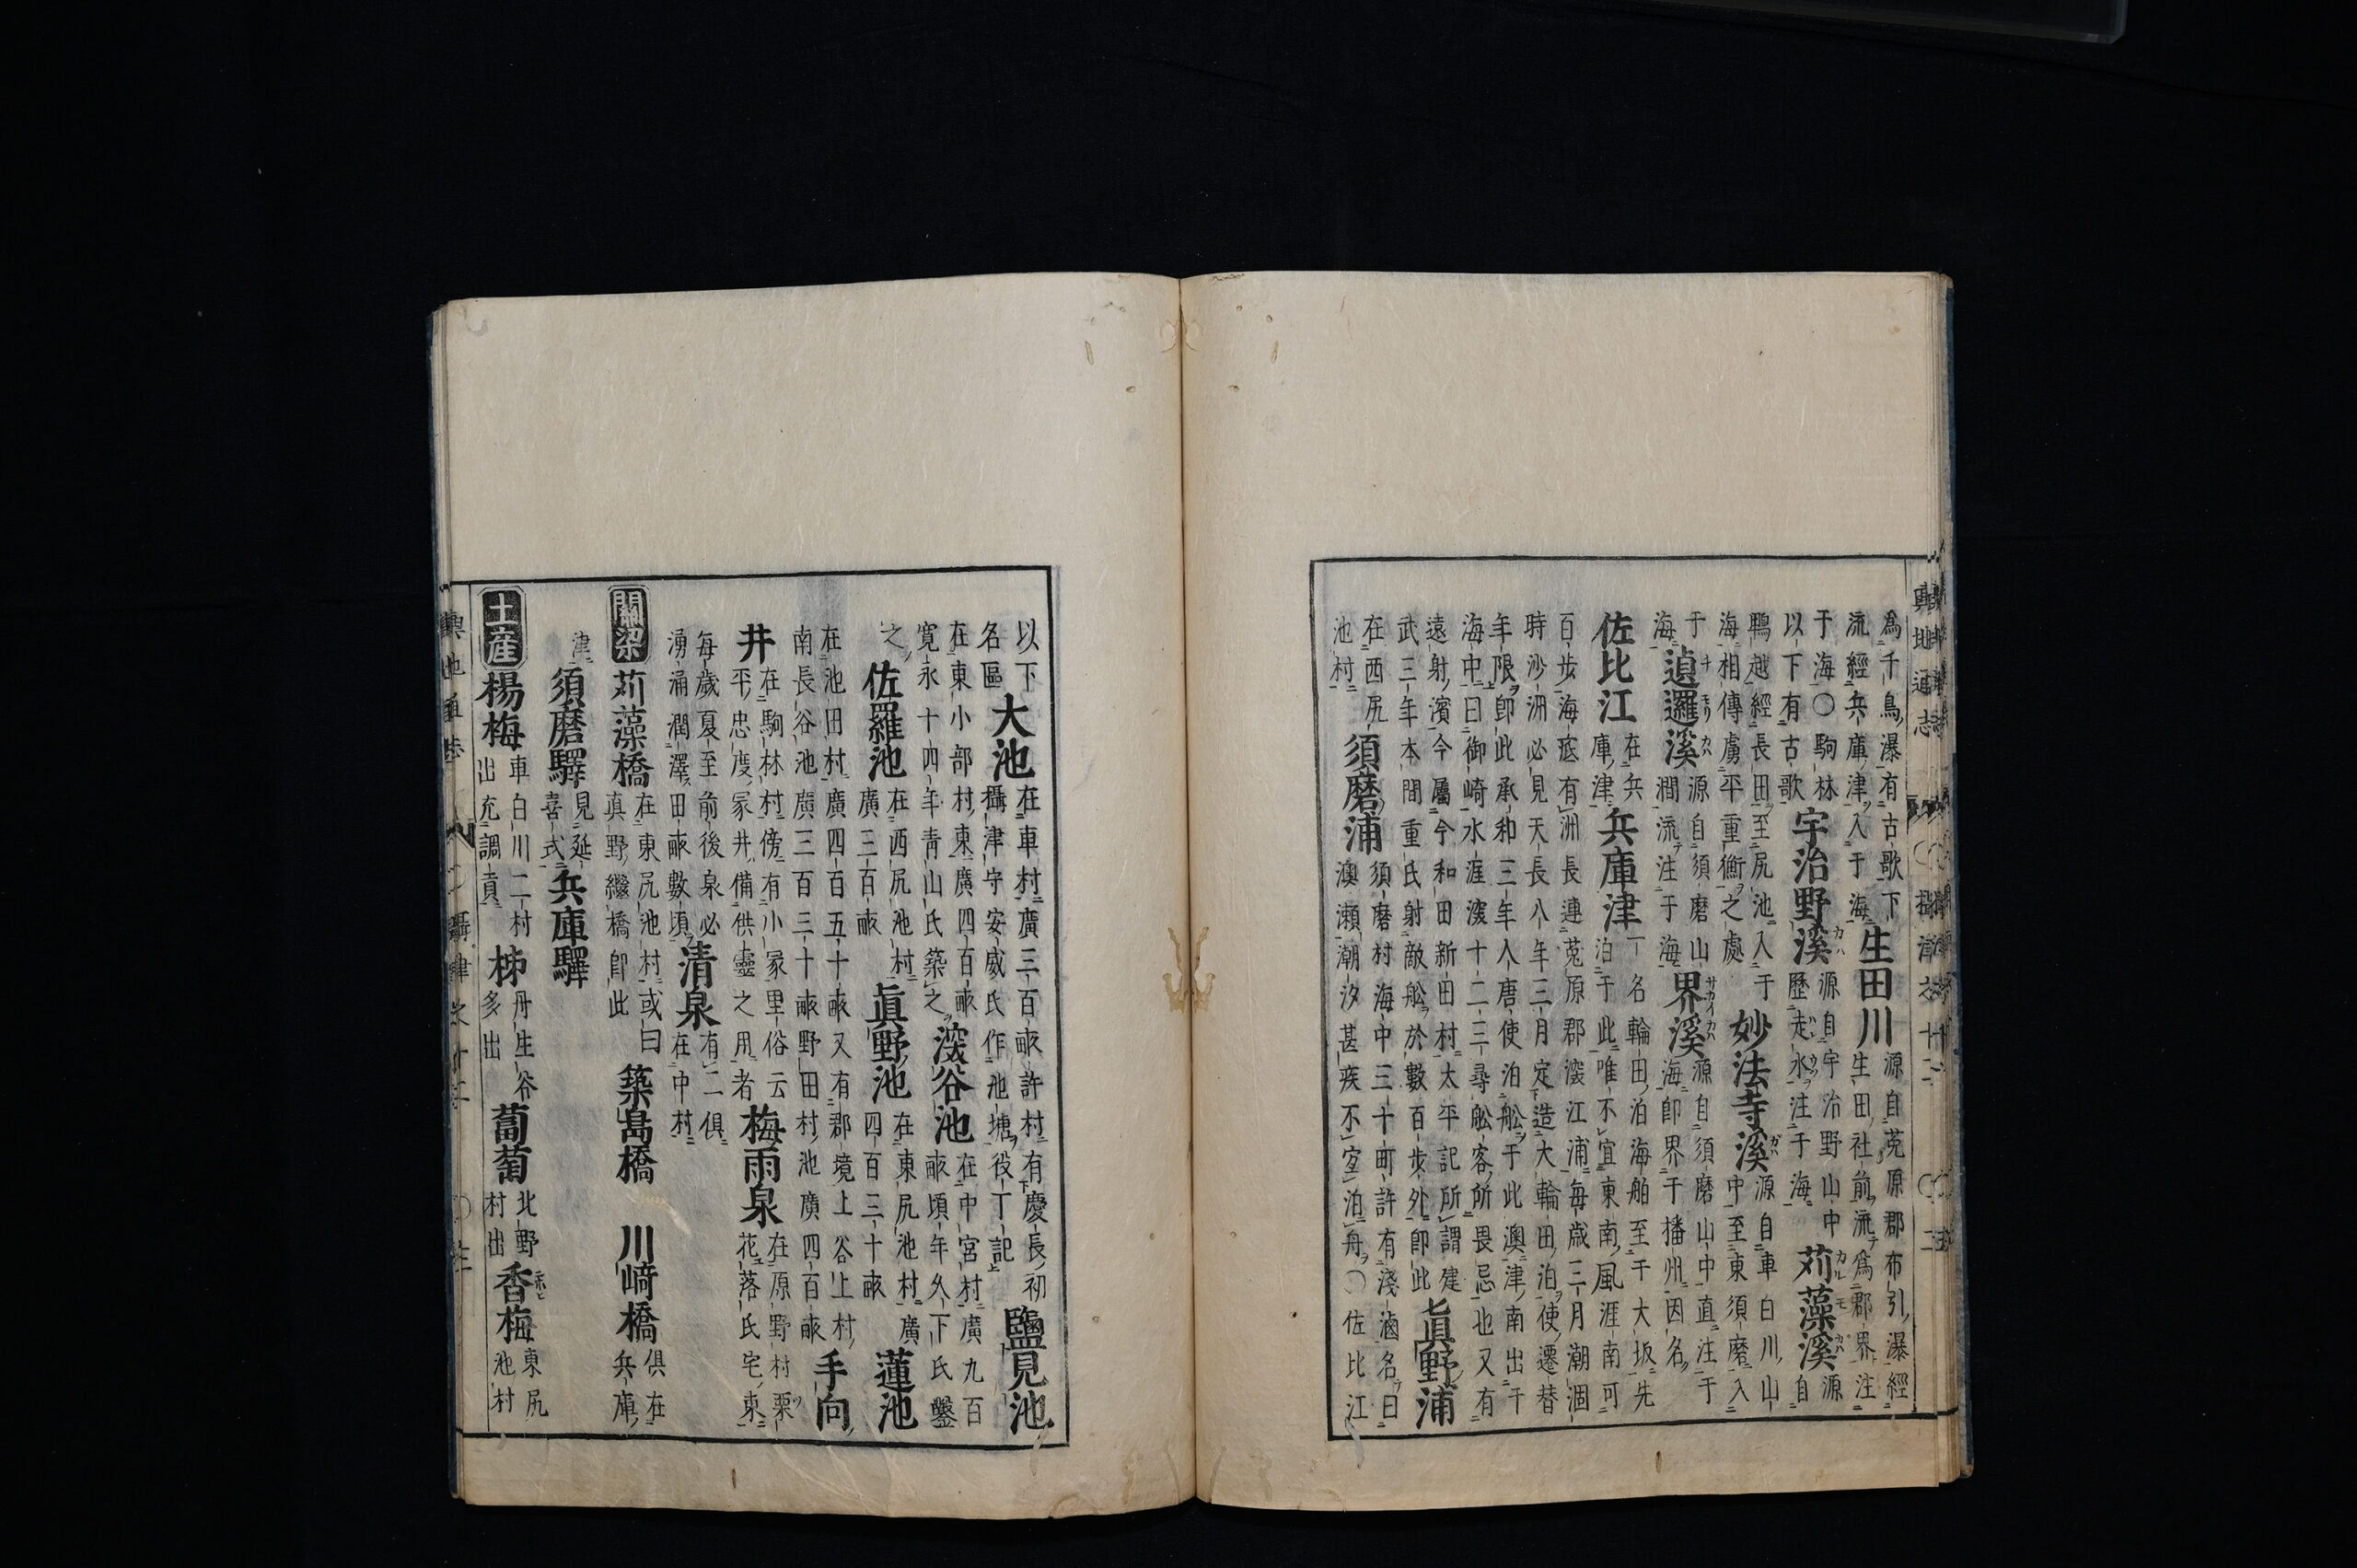 輿地通志
攝津之十二
爲千鳥瀑有古歌下
流經兵庫津入于海
生田川
源自菟原郡布引瀑經
生田社前流爲郡界注
于海〇駒林
以下有古歌
宇治野溪
源自宇治野山中
歷走水注于海
苅藻溪
源
自
鵯越經長田至尻池入于
海相傳虜平重衡之處
妙法寺溪
源自車白川山
中至東須磨入
于
海
遉邏溪
源自須磨山
澗流注于海
界溪
源自須磨山中直注于
海卽界于播州因名
佐比江
在兵
庫津
兵庫津
一名輪田泊海舶至于大坂先
泊于此唯不宜東南風涯南可
百步海底有洲長連菟原郡深江浦每歳三月潮涸
時沙洲必見天長八年三月定造大輪田泊使遷替
年限卽此承和三年人唐使泊舩于此澳津南出于
海中曰御崎水涯深十二三尋舩客所畏忌也又有
遠射濱今屬今和田新田村太平記所謂建
武三年本間重氏射敵舩於數百步外卽此
眞野浦
在西尻
池村
須磨浦
須磨村海中三十町許有淺滷名曰
澳瀬潮汐甚疾不宜泊舟〇佐比江
以下
名區
大池
在車村廣三百畝許村有慶長初
攝津守安威氏作池塘役丁記
鹽見池
在東小部村東廣四百畝
寛永十四年靑山氏築之
深谷池
在中宮村廣九百
畝頃年久下氏鑿
之
佐羅池
在西尻池村
廣三百畝
眞野池
在東尻池村廣
四百三十畝
蓮池
在池田村廣四百五十畝又有郡境上谷上村
南長谷池廣三百三十畝野田村池廣四百畝
手向
井
在駒林村傍有小冢里俗云
平忠度冢井備供靈之用者
梅雨泉
在原野村栗
花落氏宅東
每歳夏至前後泉必
湧涌潤澤田畝數頃
清泉
有二俱
在中村
關梁
苅藻橋
在東尻池村或曰
真野繼橋卽此
築島橋
川﨑橋
俱在
兵庫
津
須磨驛
見延
喜式
兵庫驛
土産
楊梅
車白川二村
出充調貢
柹
丹生谷
多出
葡萄
北野
村出
香梅
東尻
池村